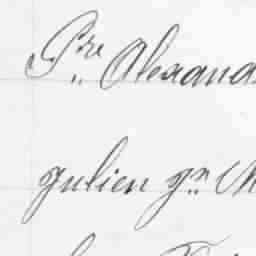 Pre Alexand
Julien gn M